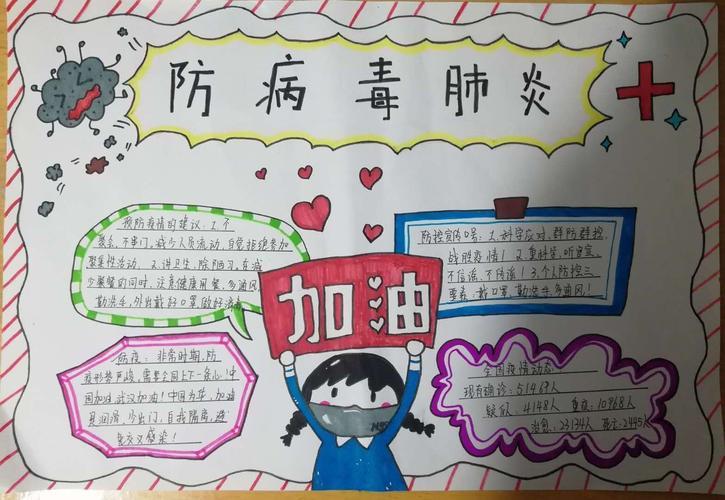 防病毒肺炎
预防疫情的建议：1.不
聚会、不串门，减少人员流动，自觉拒绝参加
聚集性活动. 2.讲卫生，除陋习，在减
少聚餐的同时，注意健康用餐，多通风，
勤洗手，外出戴好口罩，做好消
防控宣传口号：1.科学应对，群防群控，
战胜疫情！2.重科学，听官宣，
不信谣，不传谣！3.个人防控三
要素：戴口罩，勤洗手，多通风！
加油
防疫：非常时期，防
疫形势严峻，需要全国上下一条心！中
国加油武汉加油！中国力量，加油
少出门，自我隔离，避
免交叉感染！
全国疫情动态
现有确诊：51463人
疑似：4148人 重症：10968人
治愈：23134人 死亡：2445人
N95